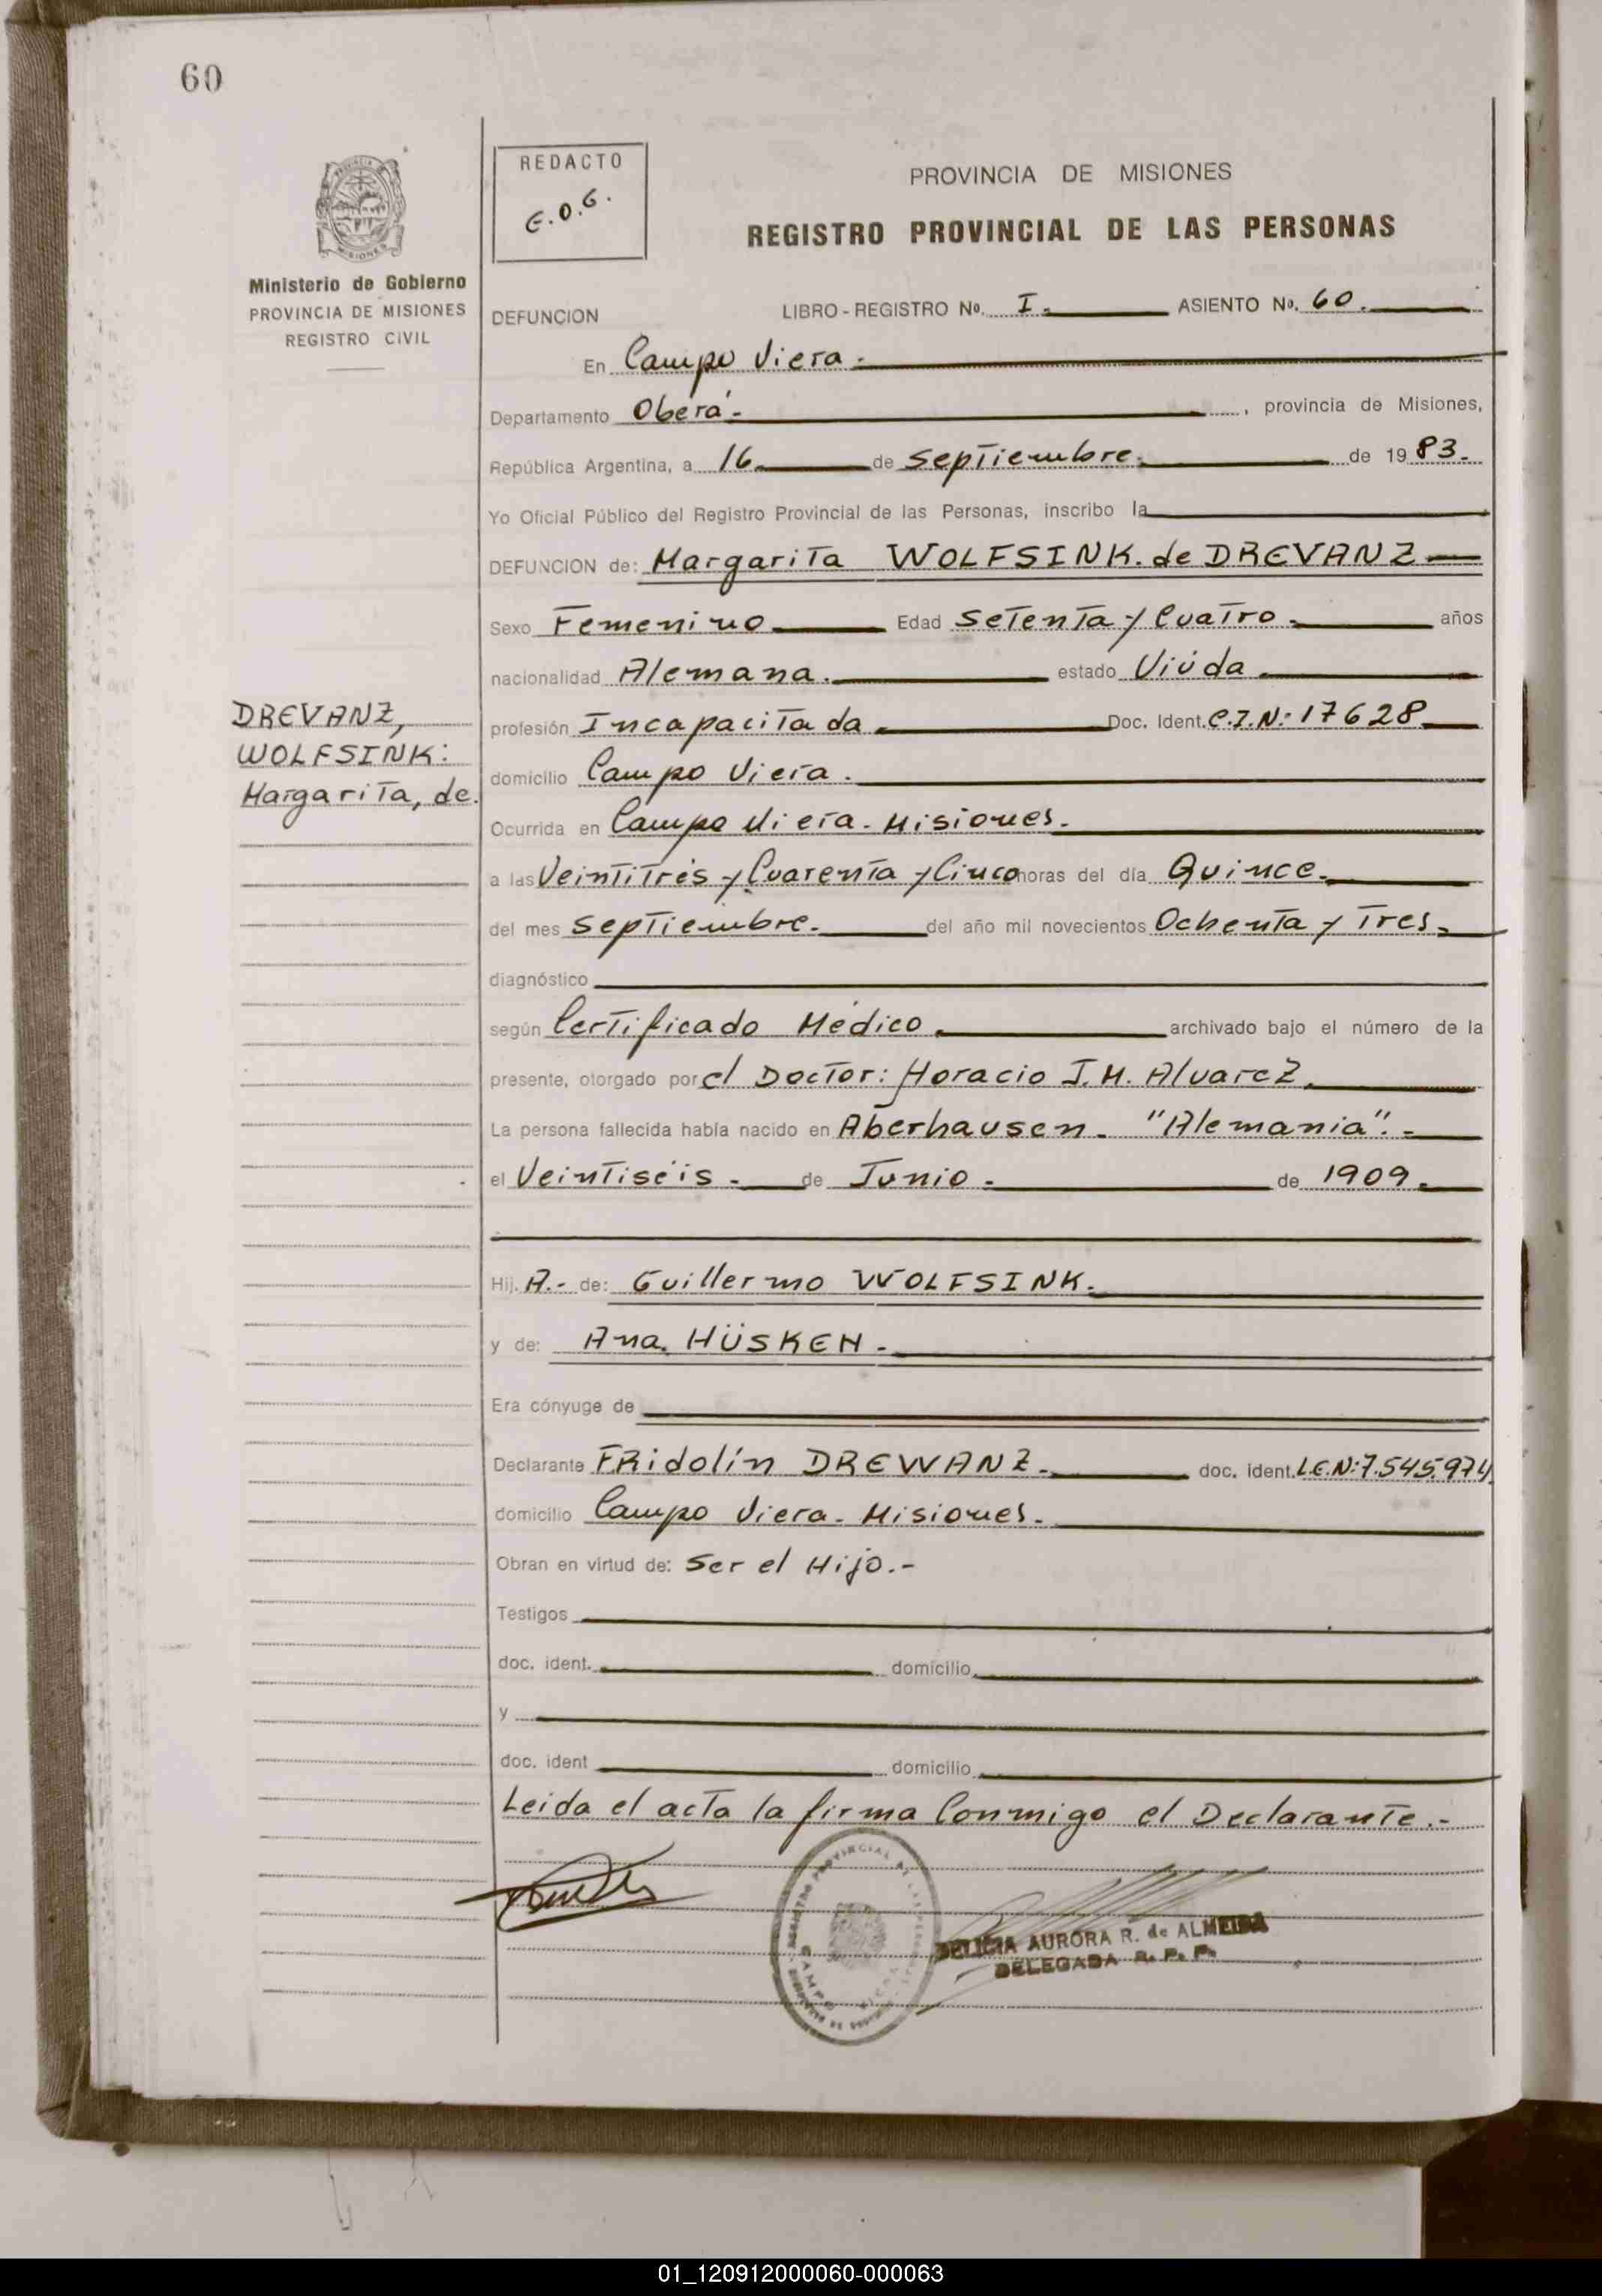 60
REDACTO
E.O.G.
PROVINCIA DE MISIONES
REGISTRO PROVINCIAL DE LAS PERSONAS
Ministerio de Gobierno
PROVINCIA DE MISIONES
REGISTRO CIVIL
DEFUNCION LIBRO-REGISTRO No. I.- ASIENTO No. 60.
En Campo Viera.-
Departamento Oberá.- , provincia de Misiones,
República Argentina, a 16 de Septiembre. de 1983.-
Yo Oficial Público del Registro Provincial de las Personas, inscribo la
DEFUNCION de: Margarita WOLFSINK. de DREVANZ
Sexo Femenino Edad Setenta y Cuatro.- años
nacionalidad Alemana. estado Viúda.
DREVANZ,
WOLFSINK:
Margarita, de.
profesión Incapacitada Doc. Ident. C.I.N: 17628
domicilio Campo Viera.
Ocurrida en Campo Viera. Misiones.
a las Veintitrés y Cuarenta y Cinco horas del día Quince.
del mes Septiembre. del año mil novecientos Ochenta y Tres.
diagnóstico
según Certificado Médico. archivado bajo el número de la
presente, otorgado por el Doctor: Horacio J.M. Alvarez.
La persona fallecida había nacido en Aberhausen. "Alemania".-
el Veintiséis.- de Junio.- de 1909.
Hij. A.- de: Guillermo WOLFSINK.
y de: Ana. HÜSKEN.-
Era cónyuge de
Declarante FRidolín DREWANZ.- doc. ident. L.E.N: 7.545.974
domicilio Campo Viera. Misiones.-
Obran en virtud de: Ser el Hijo.-
Testigos
doc. ident. domicilio
y
doc. ident domicilio
Leida el acta la firma Conmigo el Declarante.-
DELICIA AURORA R. de ALMEIDA
DELEGADA R. P. P.
01_120912000060-000063